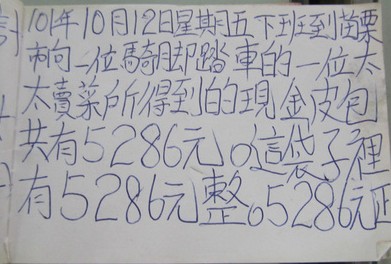 101年10月12日星期五下班到苗栗
市向一位騎腳踏車的一位太
太賣菜所得到的現金皮包
共有5286元。這袋子裡
有5286元整。5286元正